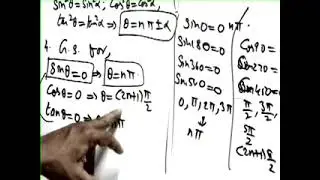 sin²θ = sin²α; cos²θ = cos²α,
tan²θ = tan²α ⇒ θ = nπ ± α
4. G.S. for,
Sinθ = 0 ⇒ θ = nπ
Cosθ = 0 ⇒ θ = (2n+1) π/2
tanθ = 0 ⇒
Sin0 = 0
Sin180 = 0
Sin360 = 0
Sin540 = 0
0, π, 2π, 3π
↓
nπ
nπ.
Cos90 =
Cos270 =
π/2, 3π/2,
5π/2
(2n+1) π/2